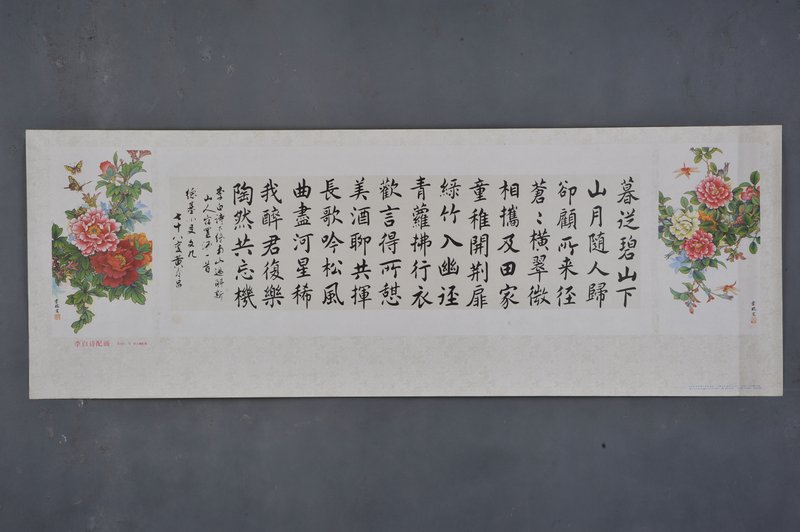 暮從碧山下
山月隨人歸
卻顧所来径
蒼々橫翠微
相攜及田家
童稚開荆扉
緑竹入幽迳
青蘿拂行衣
歡言得所憩
美酒聊共揮
長歌吟松風
曲盡河星稀
我醉君復樂
陶然共忘機
李白诗下终南山過斛斯
山人宿置酒一首
七十八叟黄
李白诗配画